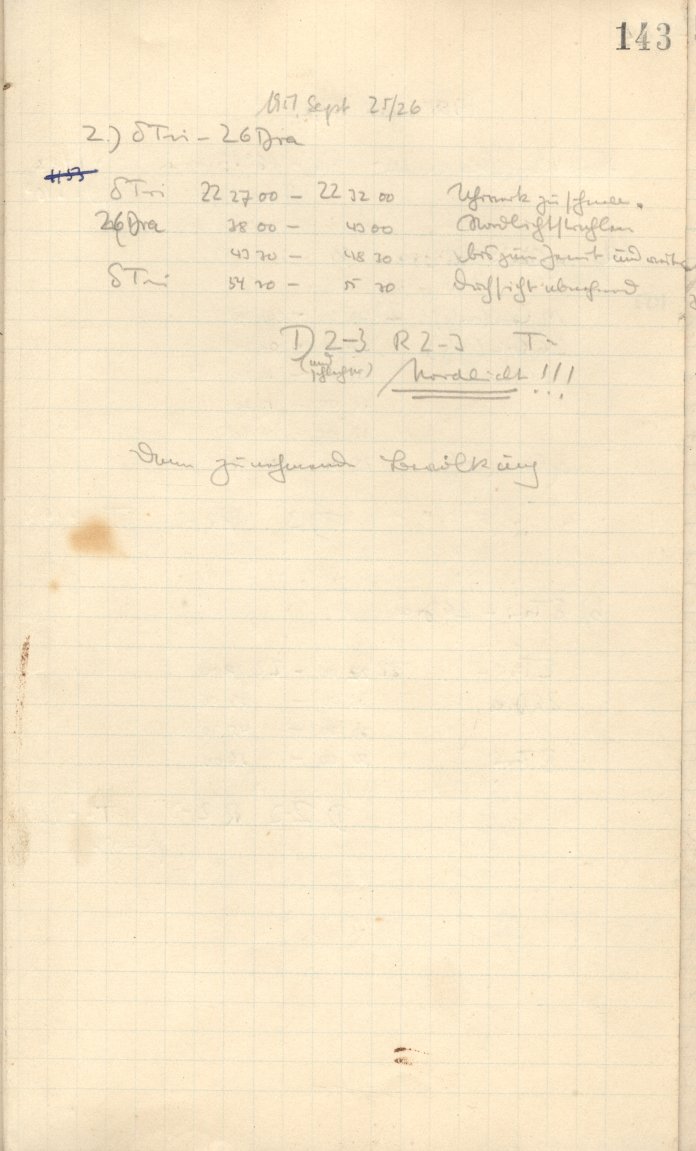 143
1951 Sept 25/26
2.) δTri – 26 Dra
1153
δTri 22 27 00 – 22 32 00 Uhrwerk zu schnell.
26 Dra 38 00 – 43 00 Nordlichtstrahlen
43 30 – 48 30 bis zum Zenit und weiter
δTri 54 30 – 30 Durchsicht abnehmend
D 2–3 R 2–3 T–
(und schlechter) Nordlicht !!!
Dann zunehmende Bewölkung